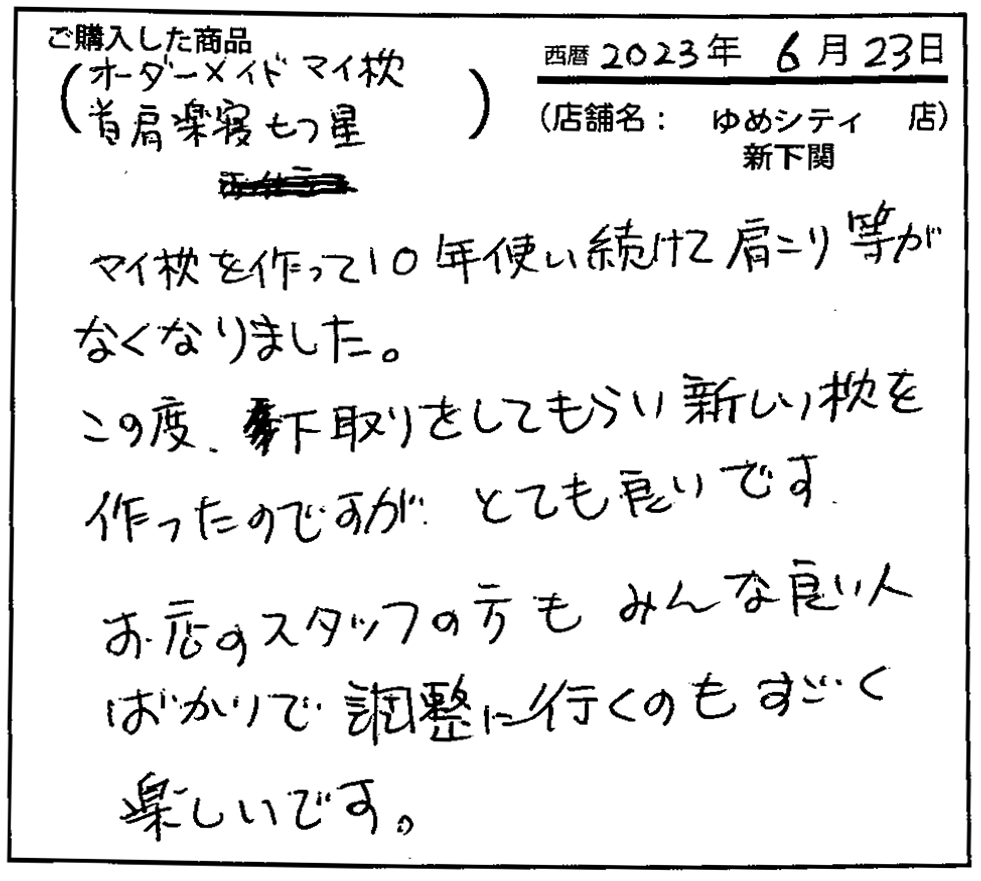 ご購入した商品
西暦 2023年 6月23日
(オーダーメイド マイ枕
首肩楽寝 もつ星)
(店舗名: ゆめシティ 店)
新下関
マイ枕を作って10年使い続けて肩こり等が
なくなりました。
この度、下取りをしてもらい新しい枕を
作ったのですが、とても良いです。
お店のスタッフの方も みんな良い人
ばかりで 調整に行くのもすごく
楽しいです。